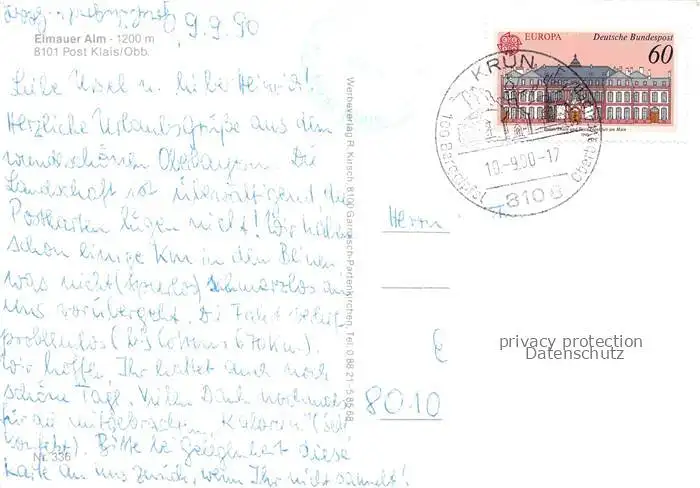 9.9.90
Elmauer Alm - 1200 m
8101 Post Klais/Obb.
Liebe Ursel u. lieber Heinrich!
Herzliche Urlaubsgrüße aus dem
wunderschönen Oberbayern. Die
Landschaft ist überwältigend, die
Postkarten lügen nicht! Wir haben
schon einige Km in den Beinen
was nicht (spurlos) schmerzlos an
uns vorübergeht. Die Fahrt verlief
problemlos (bis 670 Km).
Wir hoffen, Ihr hattet auch noch
schöne Tage. Vielen Dank nochmals
für die mitgebrachten "Kalorien" (
). Bitte bei Gelegenheit diese
Karte an uns zurück, wenn Ihr nicht sammelt!
Nr. 336
Werbeverlag R. Kirsch 8100 Garmisch-Partenkirchen, Tel. 0 88 21 - 5 85 68
EUROPA
Deutsche Bundespost
60
KRÜN
10.-9.90-17
8108
Herrn
privacy protection
Datenschutz
8010